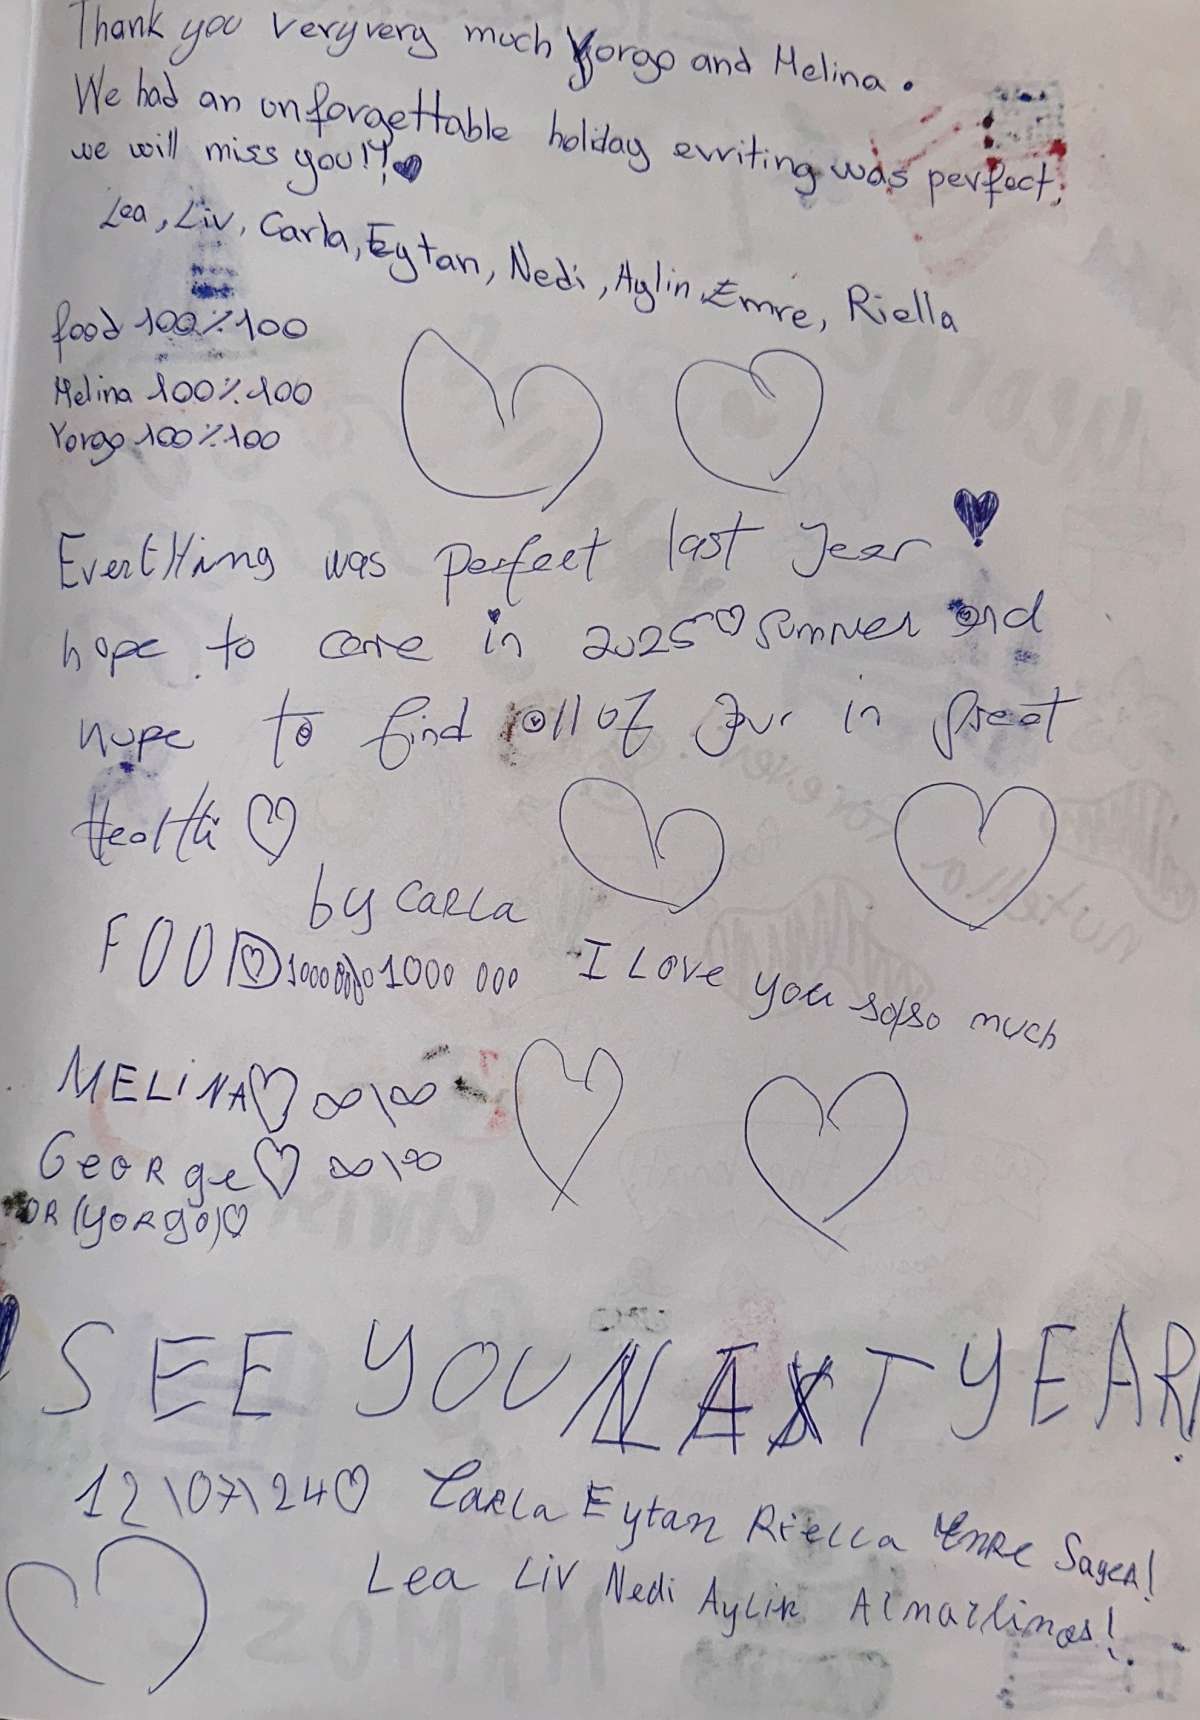 Thank you veryvery much Yorgo and Melina.
We had an unforgettable holiday evriting was perfect.
we will miss you!!
Lea, Liv, Carla, Eytan, Nedi, Aylin, Emre, Riella
food 100%100
Melina 100%100
Yorgo 100%100
EvertHing was perfect last year
hope to come in 2025 summer and
hope to find all of your in great
Healthi
by CARLA
FOOD 1000 000 I Love you so/so much
MELiNA ∞\∞
GeoRge ∞\∞
OR (YORgO)
SEE YOU NEXT YEAR!
12\07\24 CARLA Eytan Riella EMRE Sayer!
Lea Liv Nedi Aylin